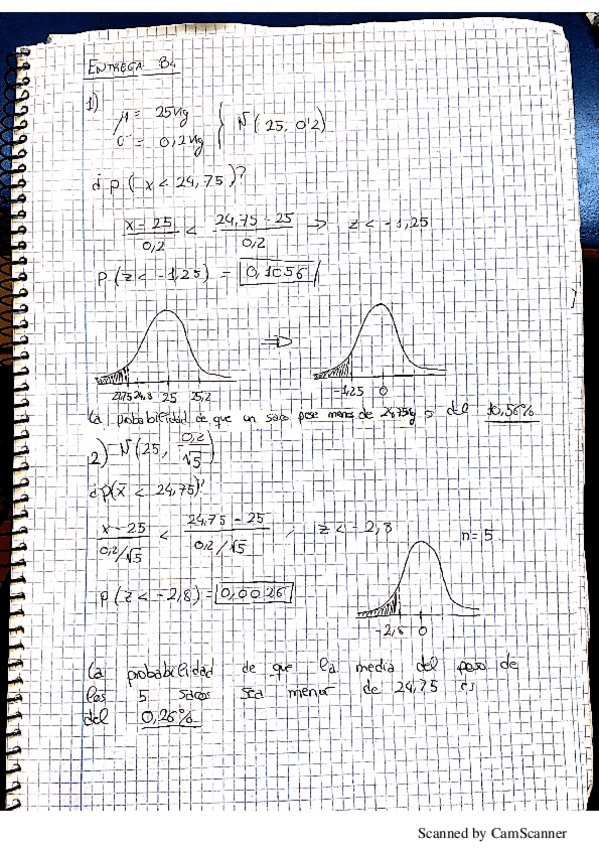 ENTREGA B4
1)
μ = 25 Kg
σ = 0,2 Kg
N(25, 0'2)
¿p(x < 24,75)?
x - 25 / 0,2 < 24,75 - 25 / 0,2 → z < -1,25
p(z < -1,25) = 0,1056
24,75 24,8 25 25,2
⇒
-1,25 0
La probabilidad de que un saco pese menos de 24,75Kg es del 10,56%
2) N(25, 0,2/√5)
¿p(x̄ < 24,75)?
x - 25 / 0,2/√5 < 24,75 - 25 / 0,2/√5 ; z < -2,8
n = 5
p(z < -2,8) = 0,0026
-2,8 0
La probabilidad de que la media del peso de
los 5 sacos sea menor de 24,75 es
del 0,26%
Scanned by CamScanner